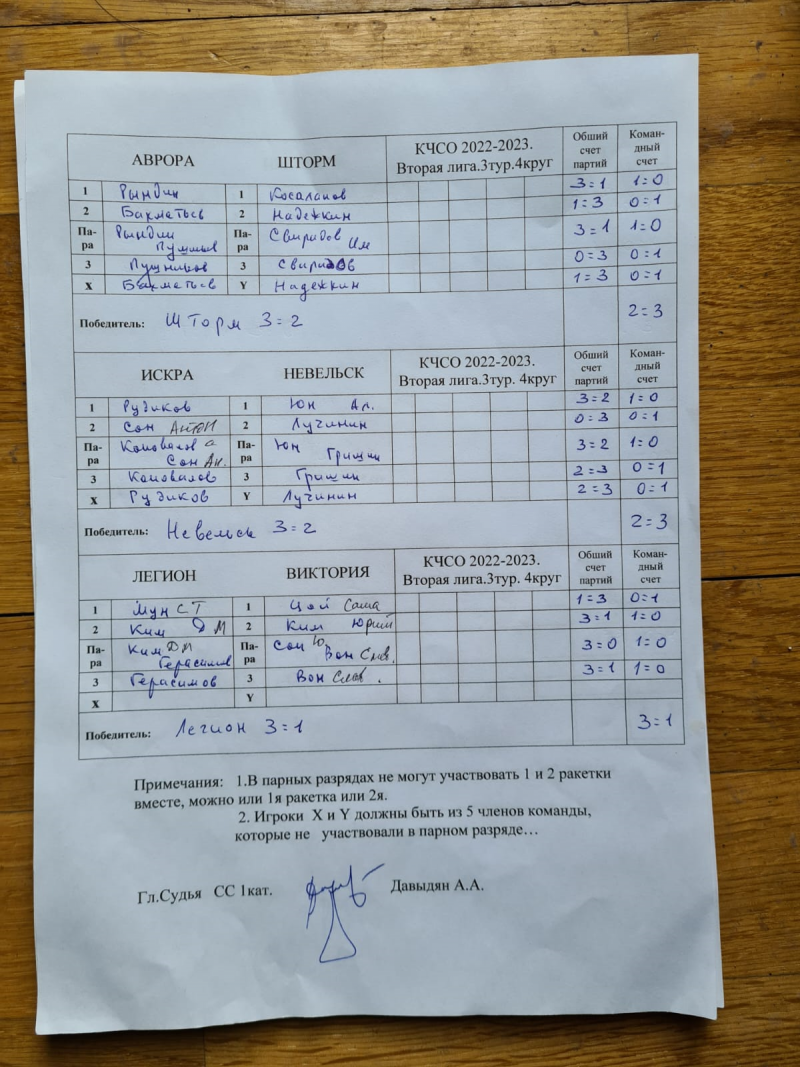 АВРОРА ШТОРМ КЧСО 2022-2023. Вторая лига.3тур.4круг Обший счет партий Коман-дный счет
1 Рындин 1 Косалапов 3=1 1=0
2 Бахметьев 2 Надежкин 1=3 0=1
Па-ра Рындин Па-ра Свиридов 3=1 1=0
3 Пушников 3 Свиридов 0=3 0=1
X Бахметьев Y Надежкин 1=3 0=1
Победитель: Шторм 3=2 2=3
ИСКРА НЕВЕЛЬСК КЧСО 2022-2023. Вторая лига.3тур. 4круг Обший счет партий Коман-дный счет
1 Рудиков 1 Юн Ал. 3=2 1=0
2 Сон Антон 2 Лучинин 0=3 0=1
Па-ра Коновалов Сон Ан. Па-ра Юн Гришин 3=2 1=0
3 Коновалов 3 Гришин 2=3 0=1
X Рудиков Y Лучинин 2=3 0=1
Победитель: Невельск 3=2 2=3
ЛЕГИОН ВИКТОРИЯ КЧСО 2022-2023. Вторая лига.3тур. 4круг Обший счет партий Коман-дный счет
1 Мун СТ 1 Цой Саша 1=3 0=1
2 Ким ДМ 2 Ким Юрий 3=1 1=0
Па-ра Ким ДМ Герасимов Па-ра Сон Ю Вон Слав. 3=0 1=0
3 Герасимов 3 Вон Слав. 3=1 1=0
X Y
Победитель: Легион 3=1 3=1
Примечания: 1.В парных разрядах не могут участвовать 1 и 2 ракетки
вместе, можно или 1я ракетка или 2я.
2. Игроки X и Y должны быть из 5 членов команды,
которые не участвовали в парном разряде…
Гл.Судья СС 1кат. Давыдян А.А.